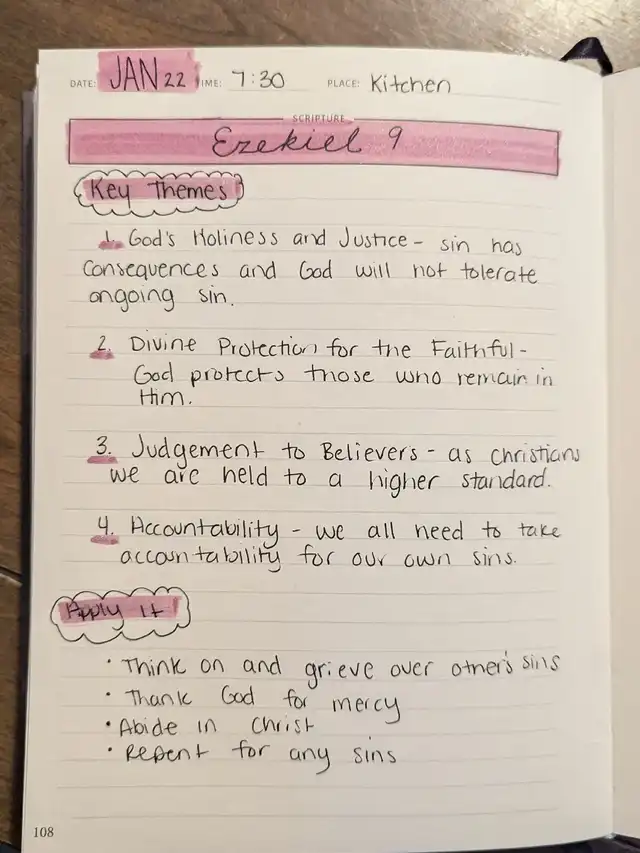 DATE: JAN 22 TIME: 7:30 PLACE: Kitchen
SCRIPTURE
Ezekiel 9
Key Themes
1. God's Holiness and Justice - sin has
consequences and God will not tolerate
ongoing sin.
2. Divine Protection for the Faithful -
God protects those who remain in
Him.
3. Judgement to Believers - as christians
we are held to a higher standard.
4. Accountability - we all need to take
accountability for our own sins.
Apply it
• Think on and grieve over other's sins
• Thank God for mercy
• Abide in Christ
• Repent for any sins
108